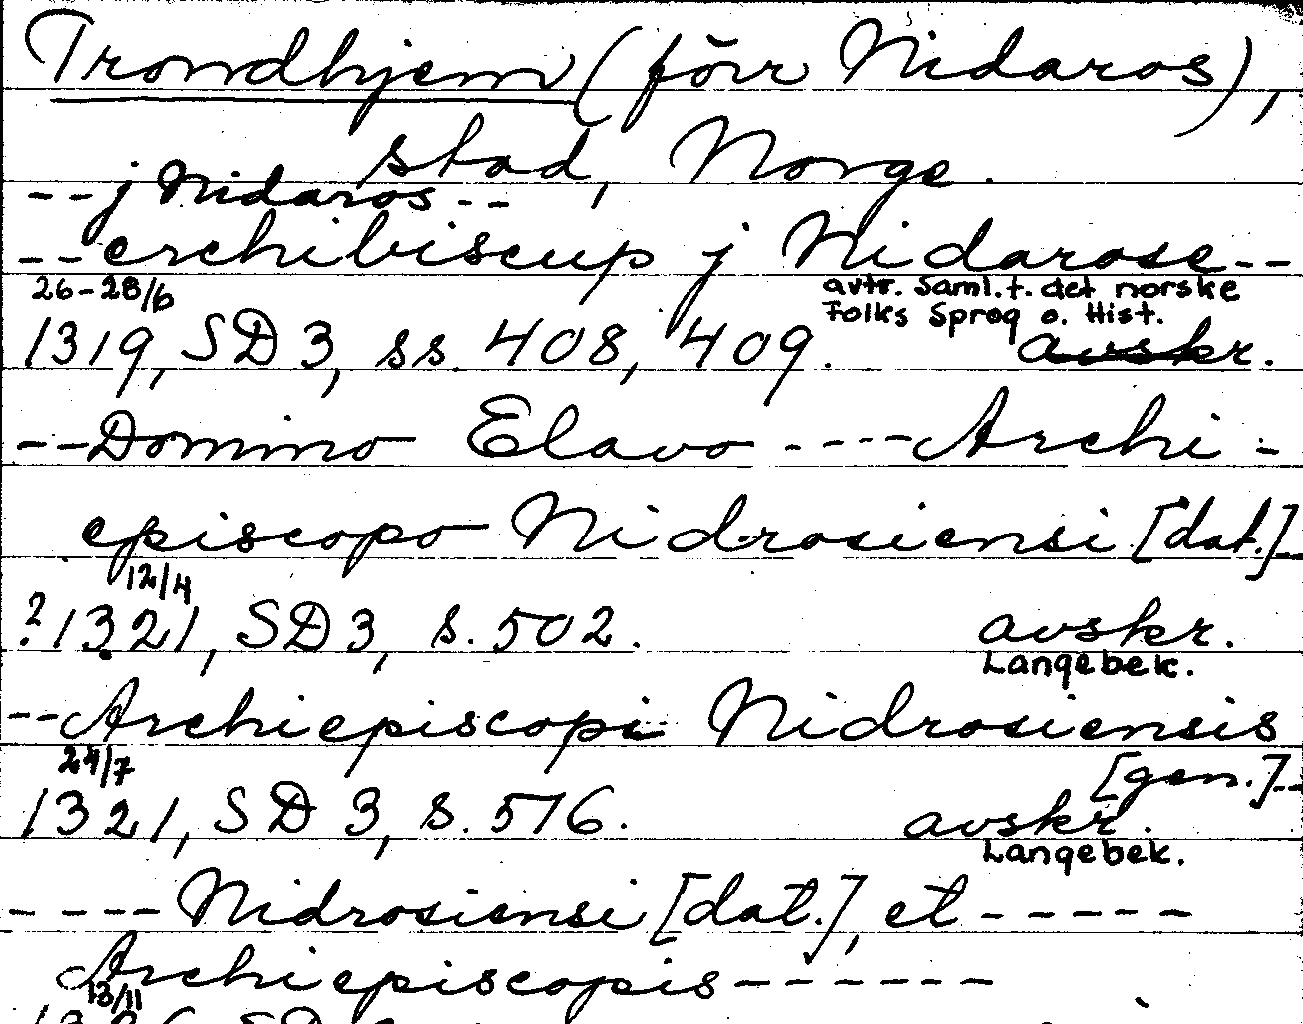 Trondhjem (förr Nidaros),
stad, Norge.
-- j Nidaros --
-- erchibiscup j Nidarose --
26-28/6
avtr. Saml. t. det norske
Folks Sprog o. Hist.
1319, SD 3, ss. 408, 409. avskr.
-- Domino Elavo ---- Archi-
episcopo Nidrosiensi [dat.] --
12/4
? 1321, SD 3, s. 502. avskr.
Langebek.
-- Archiepiscopi Nidrosiensis
24/7
[gen.] --
1321, SD 3, s. 576. avskr.
Langebek.
---- Nidrosiensi [dat.], et -----
Archiepiscopis ------
13/11